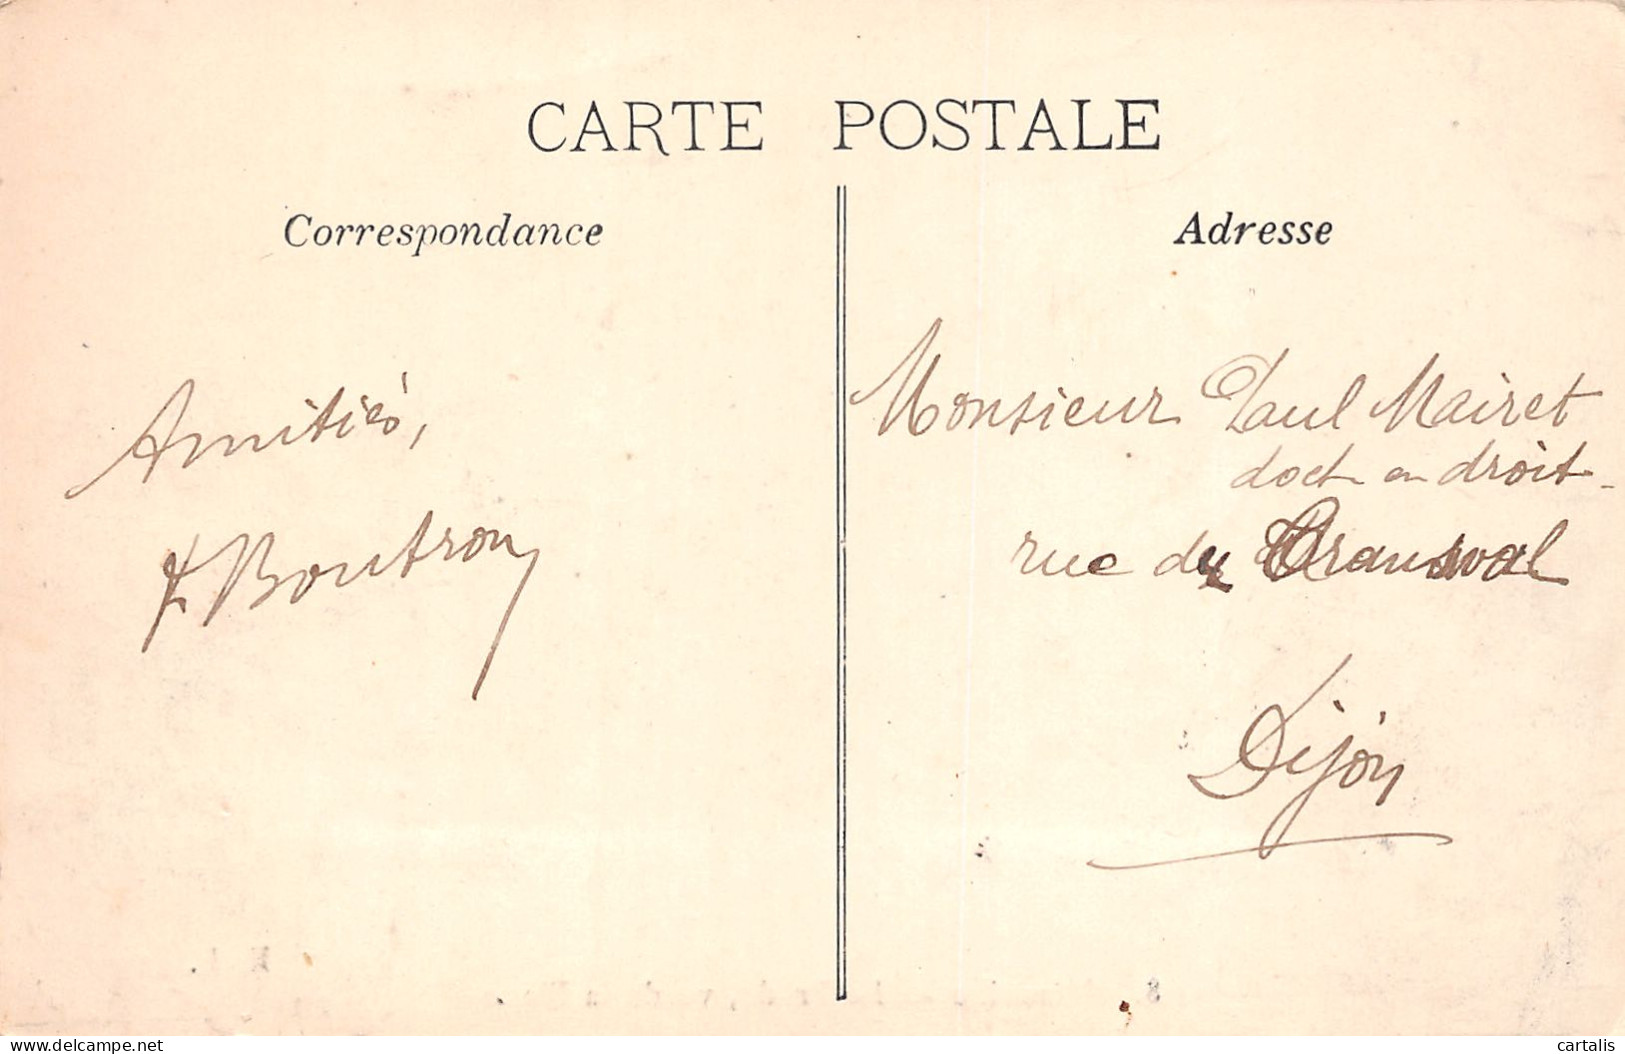 CARTE POSTALE
Correspondance
Adresse
Amitiés,
Boutron
Monsieur Paul Mairet
doct en droit
rue du Transval
Dijon
8
delcampe.net
cartalis